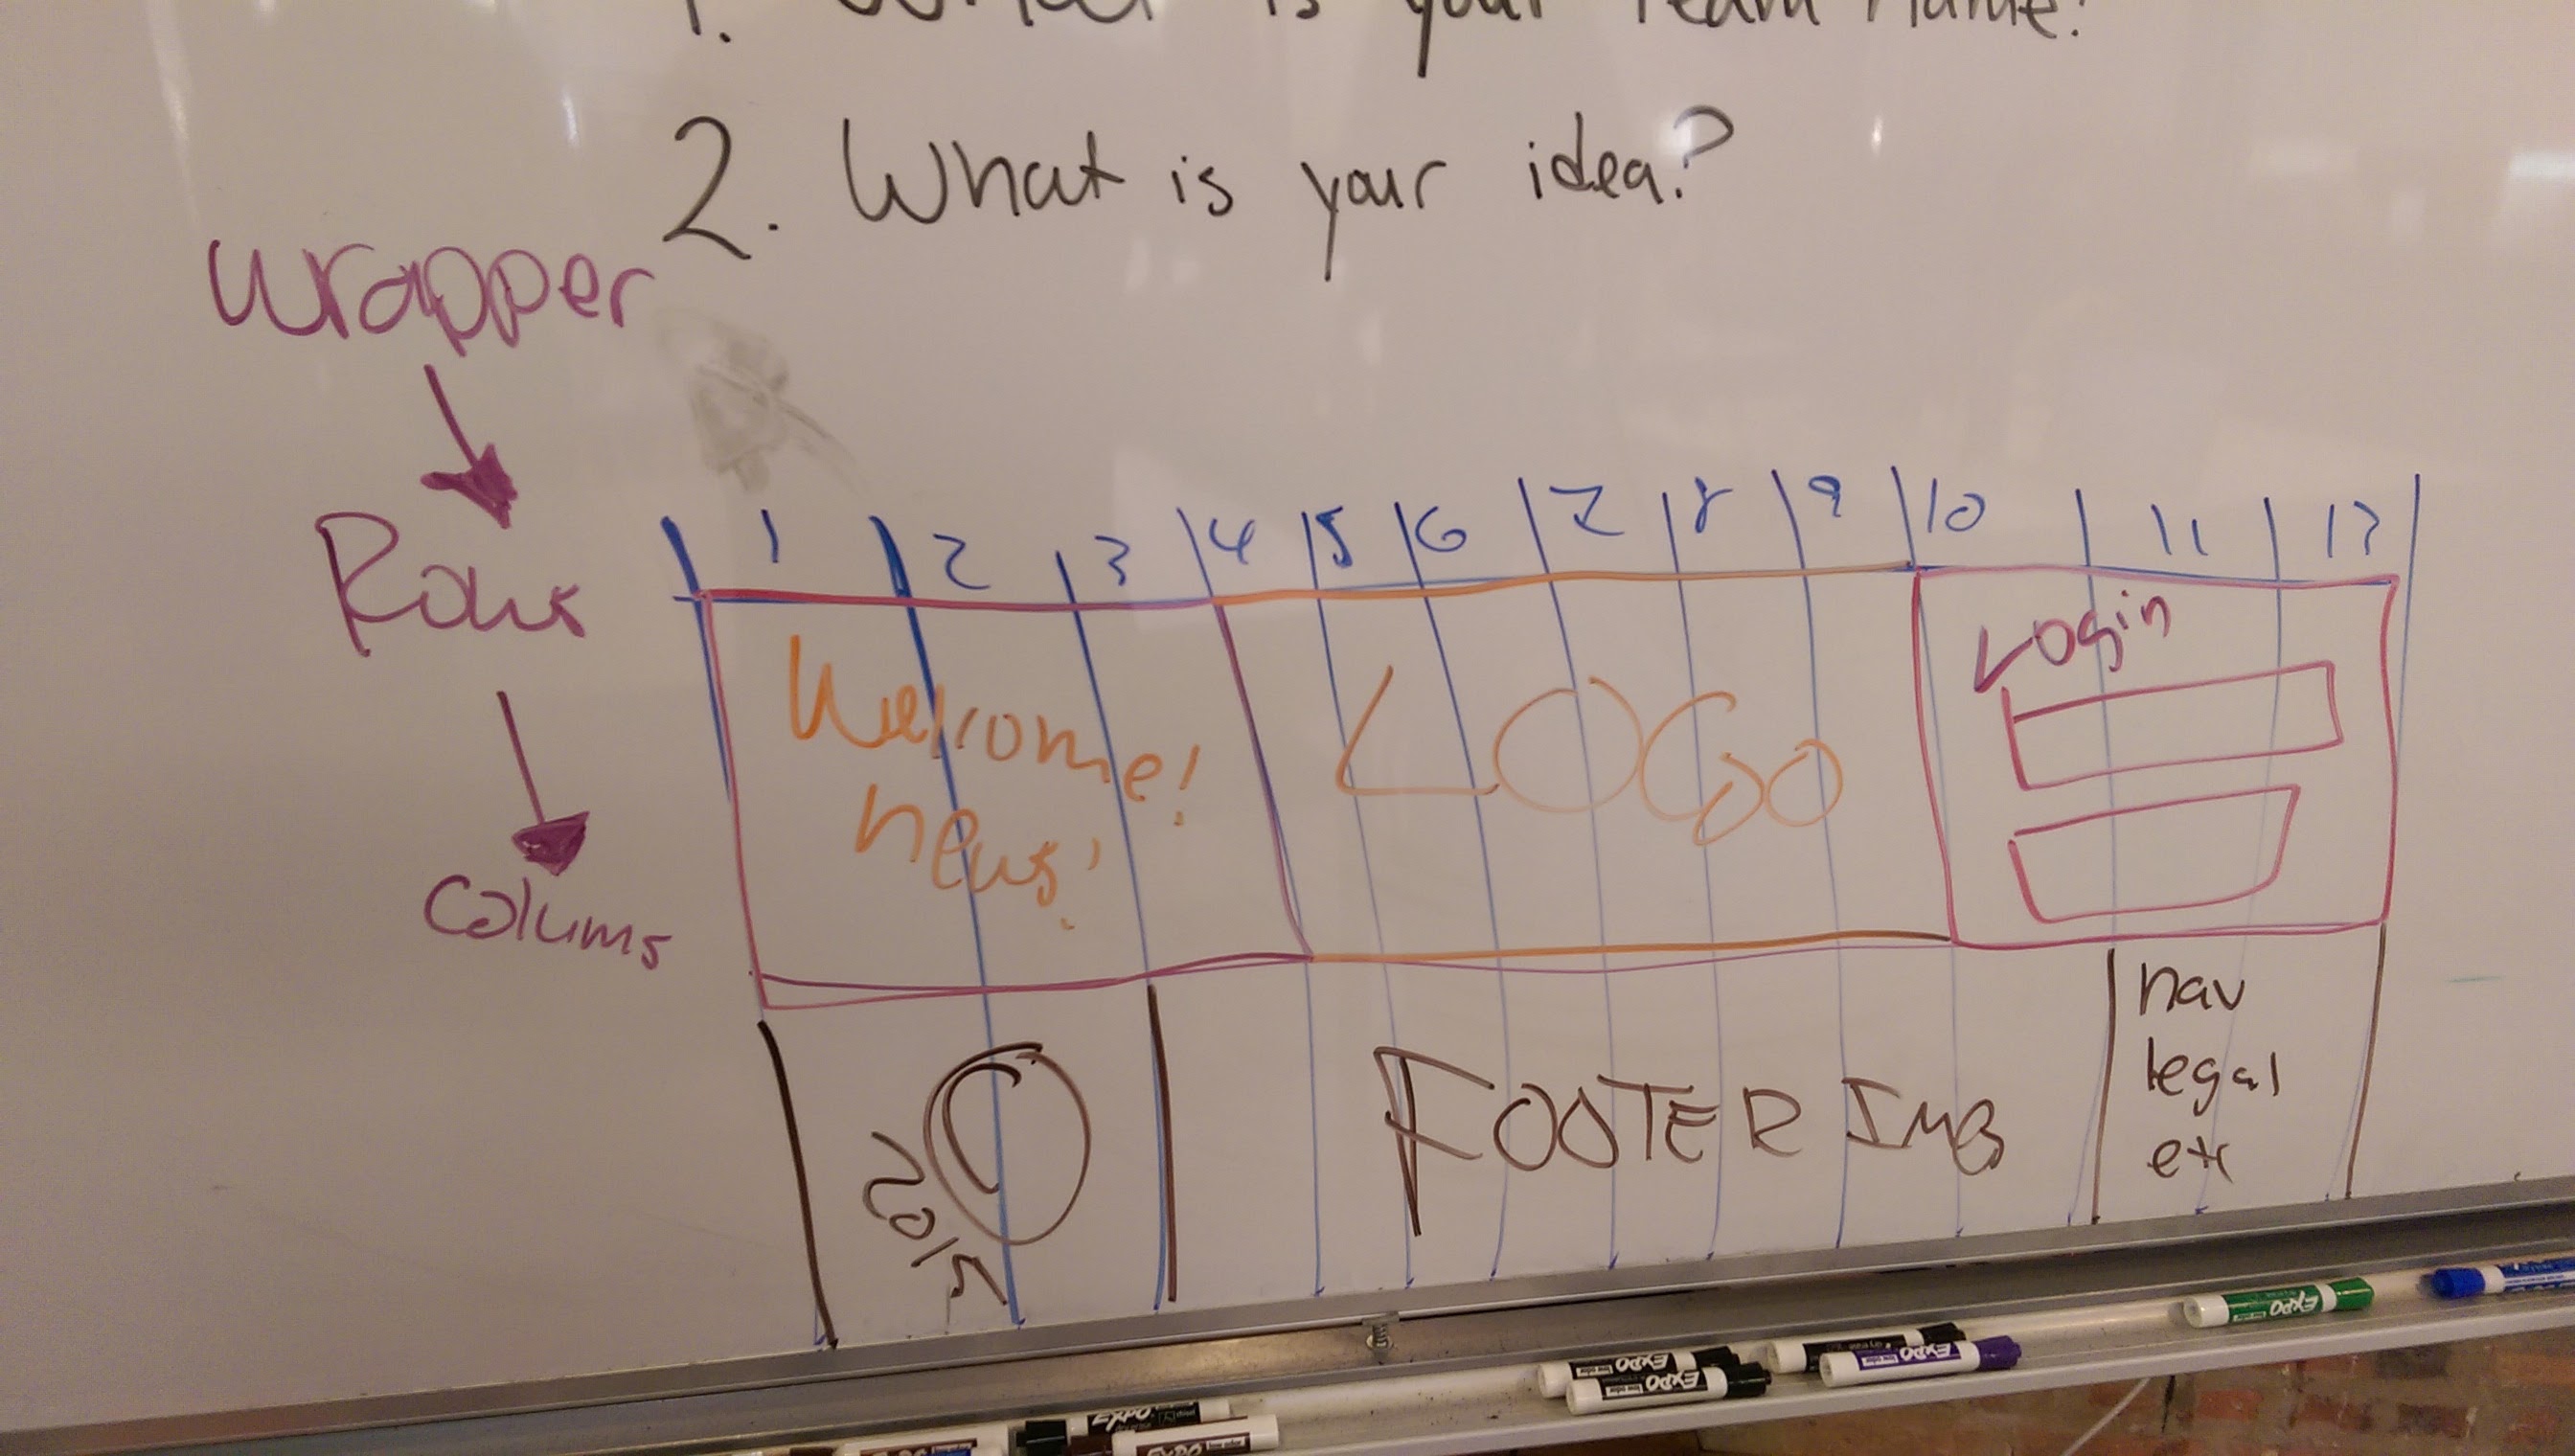 1. What is your Team Name?
2. What is your idea?
wrapper
Rows
Colums
1 2 3 4 5 6 7 8 9 10 11 12
Welcome!
news!
LOGO
Login
© 2015
FOOTER IMG
nav
legal
etc
EXPO
EXPO
EXPO
EXPO
EXPO
EXPO